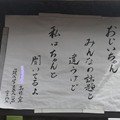 おじいちゃん
みんなの話題と
違うけど
私はちゃんと
聞いてるよ